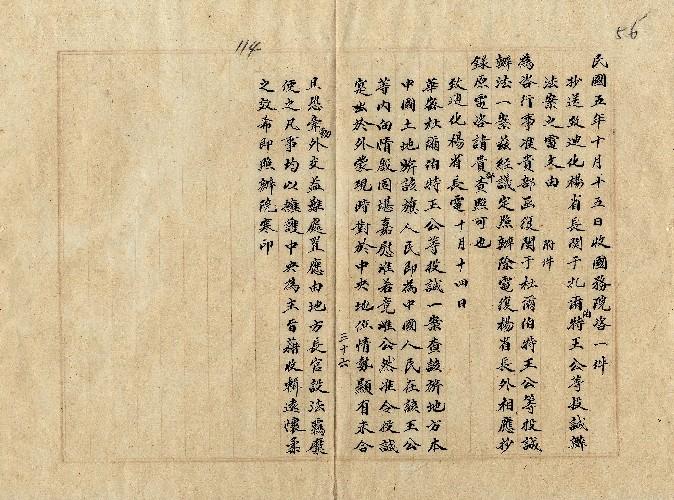 56
114
民國五年十月十五日收國務院咨一件
抄送致迪化楊省長關于杜爾伯特王公等投誠辦
法案之電文由 附件
為咨行事准貴部函復關于杜爾伯特王公等投誠
辦法一案茲經議定照辦除電復楊省長外相應抄
錄原電咨請貴部查照可也
致迪化楊省長電 十月十四日
華密杜爾伯特王公等投誠一案查該旂地方本
中國土地旂該旗人民即為中國人民在該王公
等內向情殷固堪嘉慰惟若竟公然准令投誠
突出於外蒙現時對於中央地位情勢顯有未合
且恐牽動外交益難處置應由地方長官設法羈縻
使之凡事均以擁護中央為主旨藉收輯遠懷柔
之效希即照辦院寒印
三十六